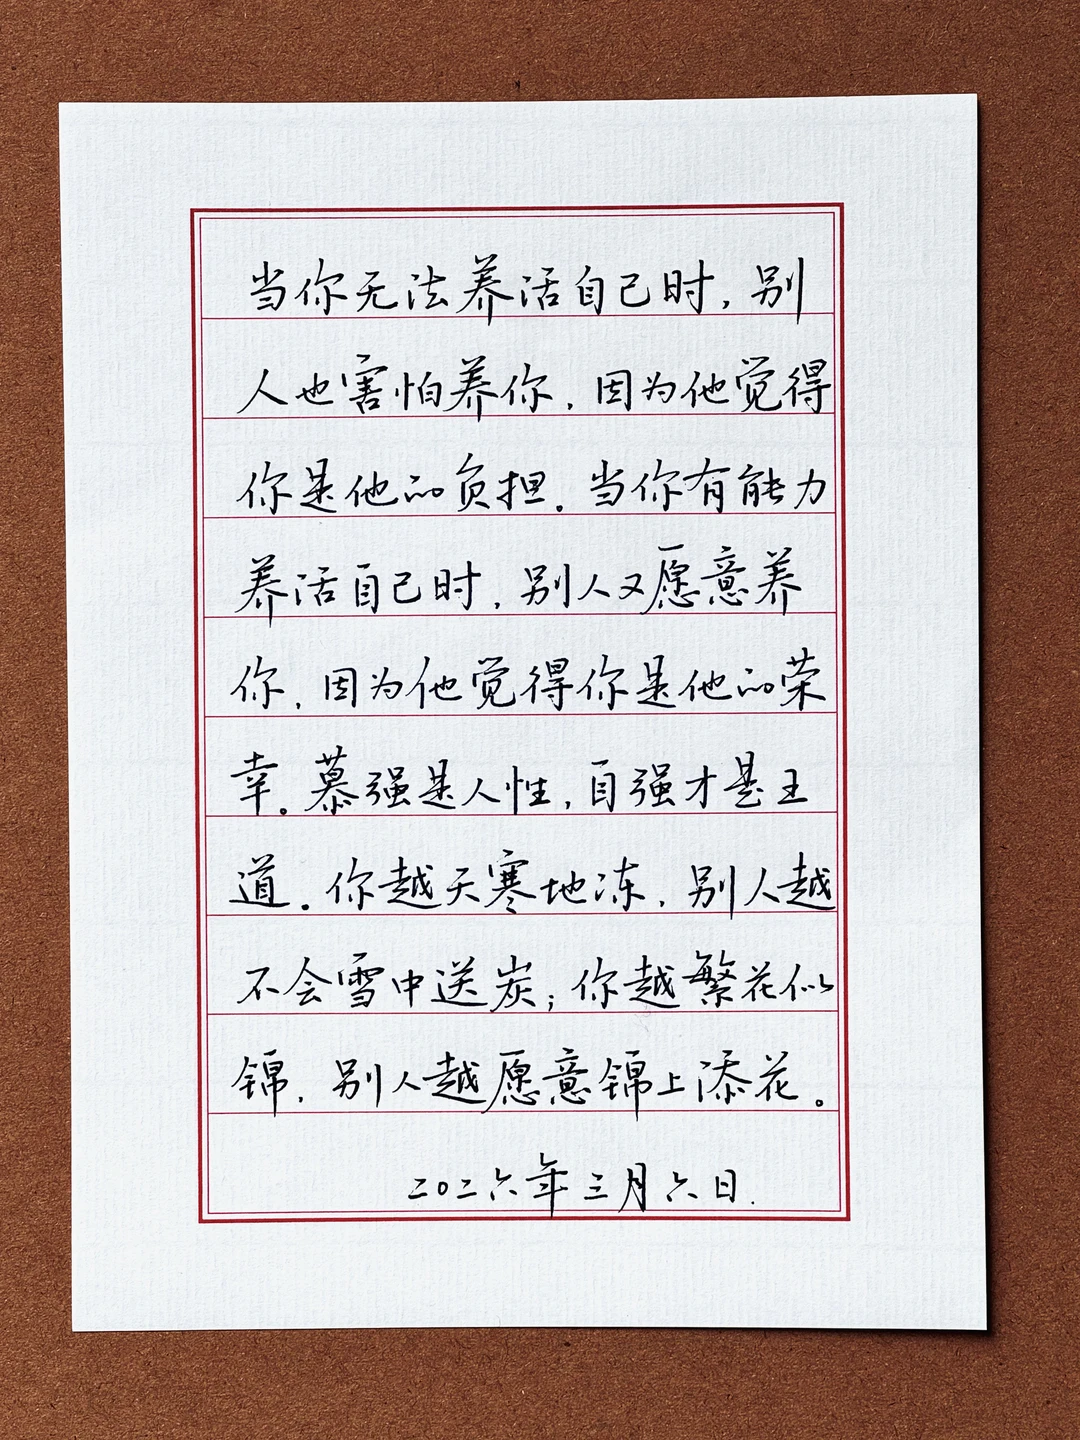 当你无法养活自己时，别
人也害怕养你，因为他觉得
你是他的负担。当你有能力
养活自己时，别人又愿意养
你，因为他觉得你是他的荣
幸。慕强是人性，自强才是王
道。你越天寒地冻，别人越
不会雪中送炭；你越繁花似
锦，别人越愿意锦上添花。
二〇二六年三月六日.